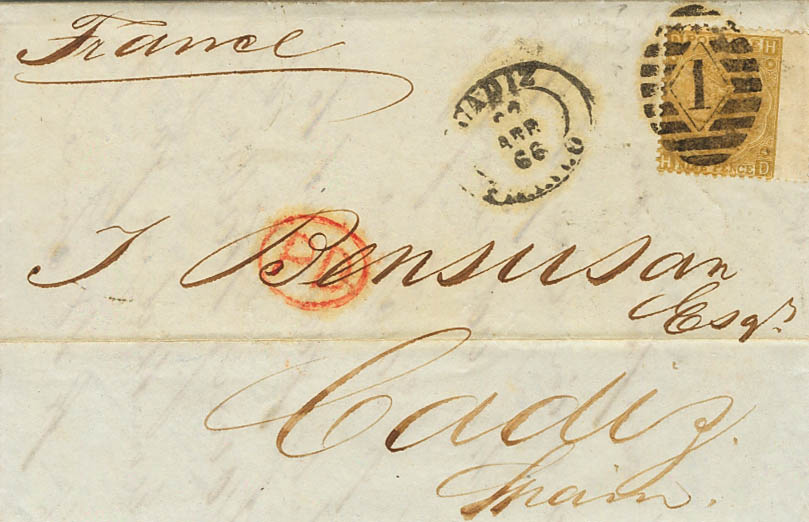 France
CADIZ
ABR
66
1
H
H
D
PD
J Bensusan
Esqr
Cadiz.
Spain.